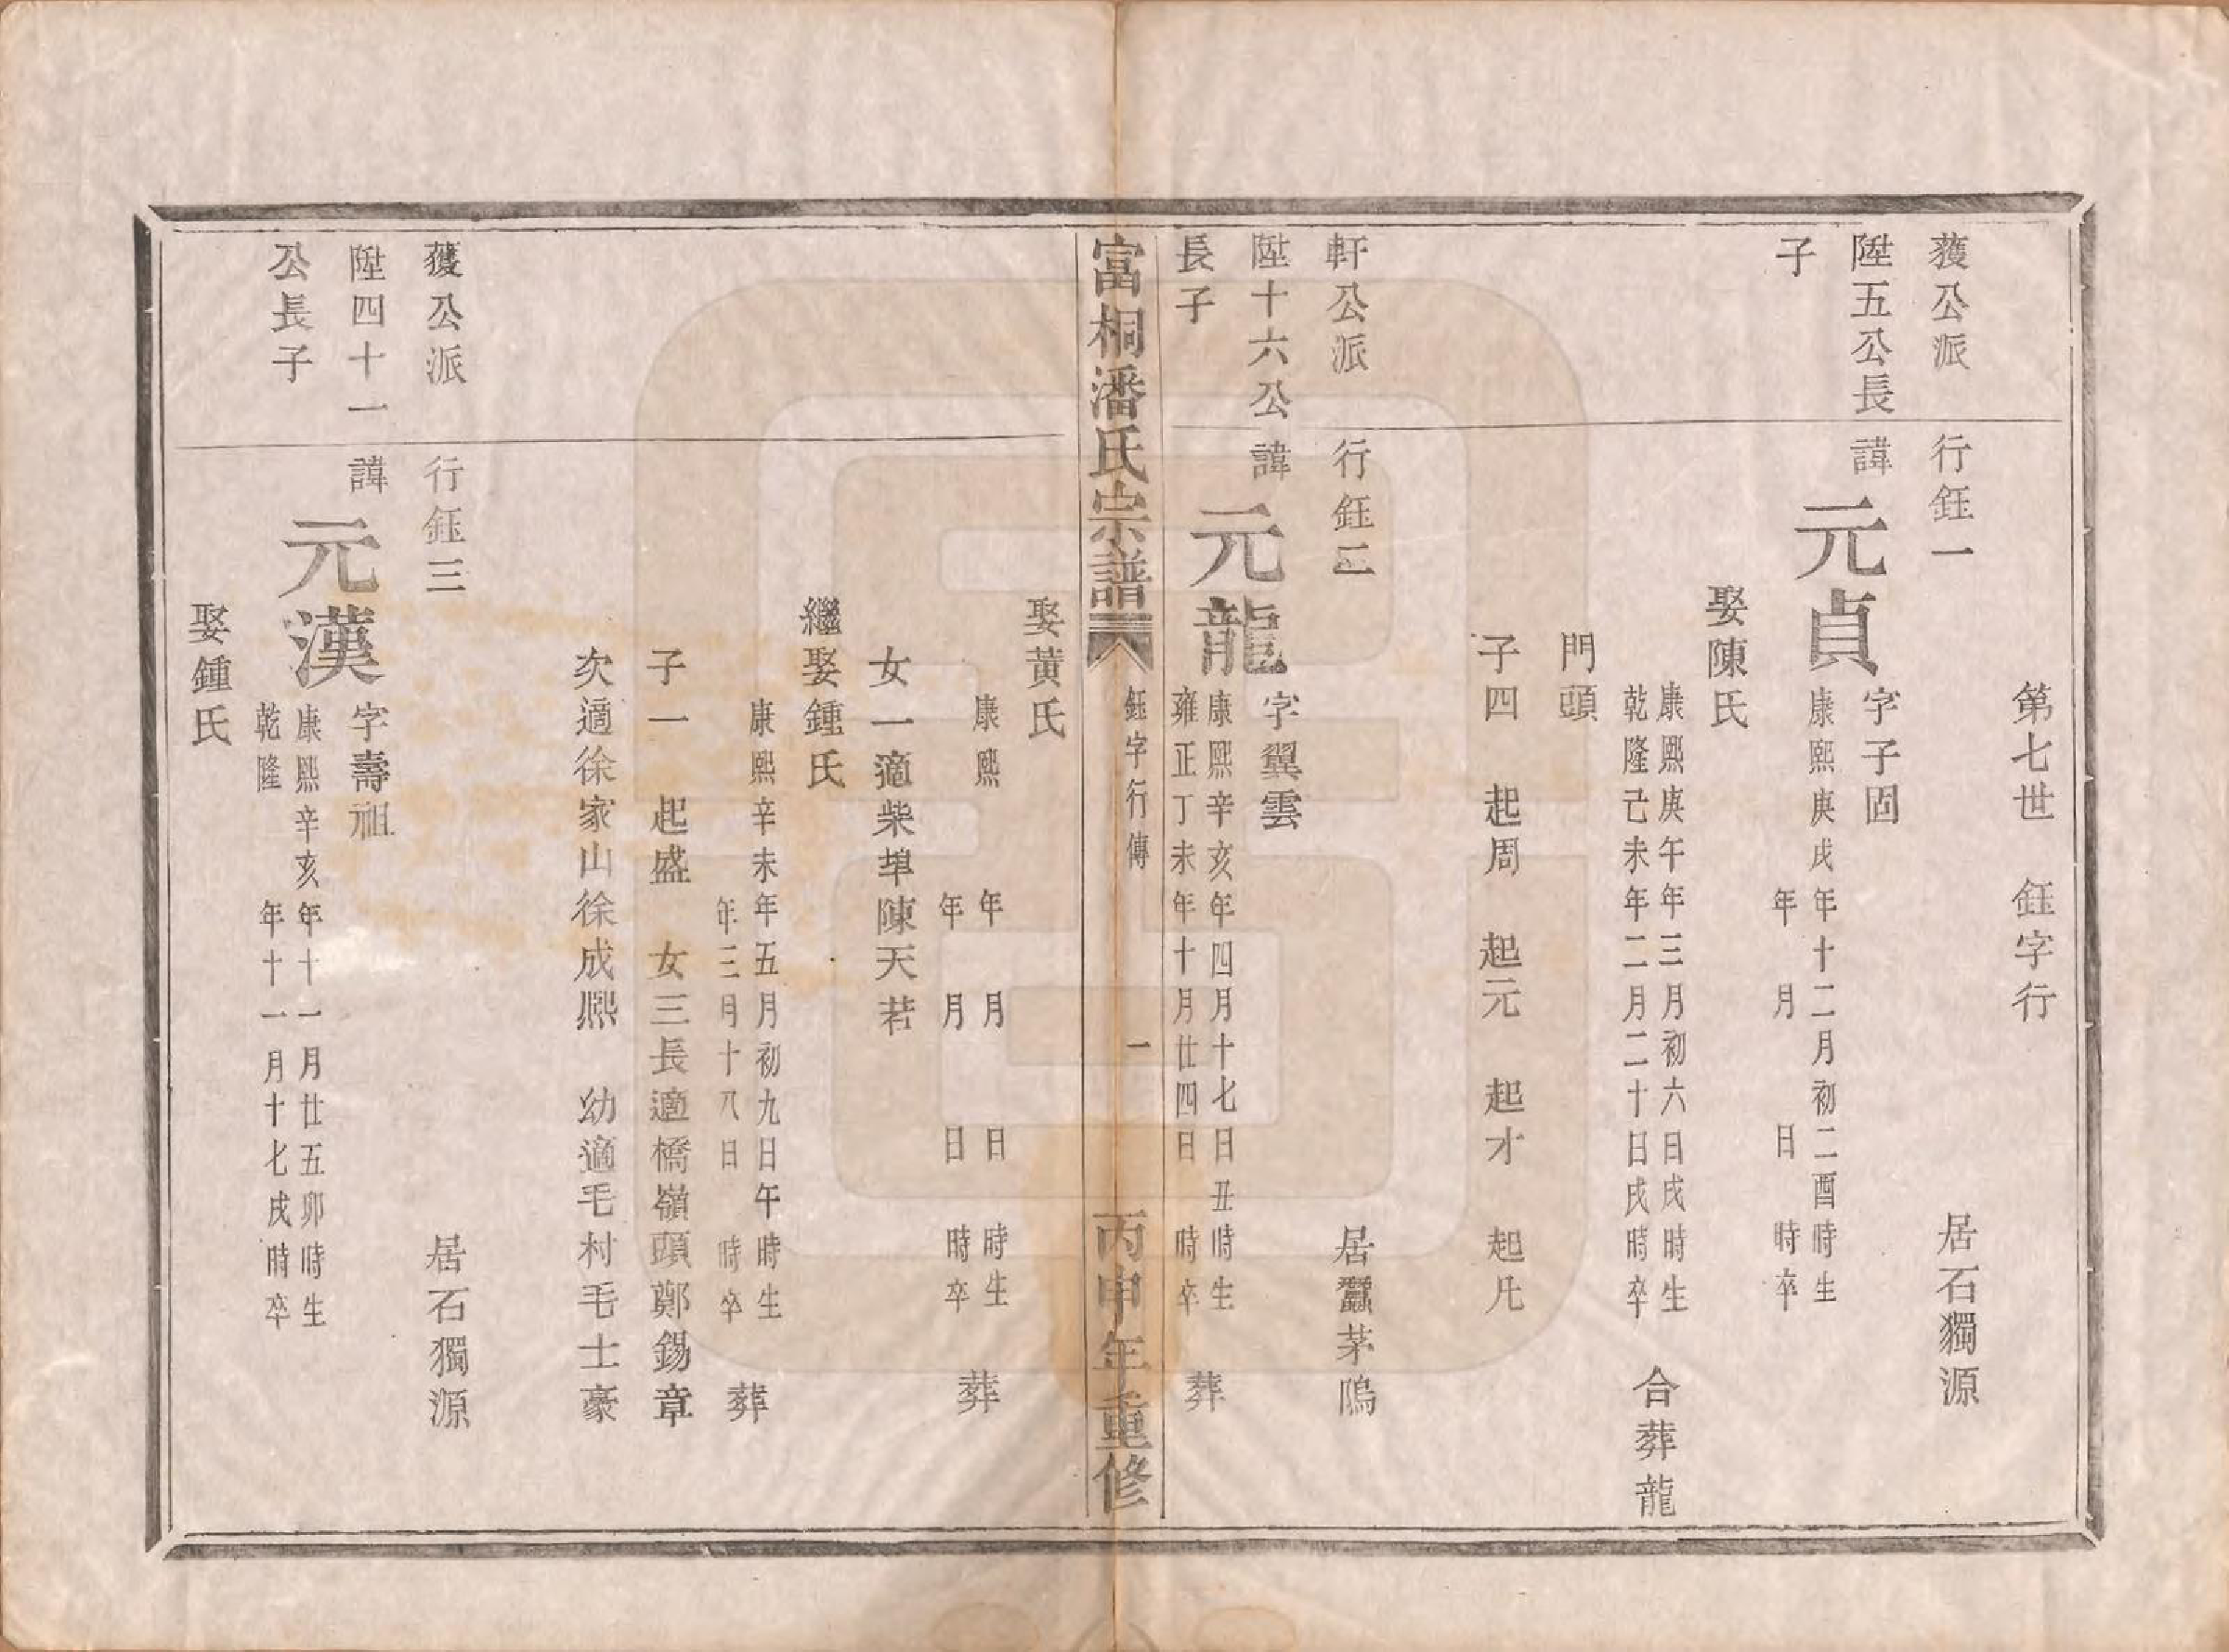 第七世　鈺字行
獲公派
行鈺一
居石獨源
陞五公長
子
諱
元貞
字子固
康熙庚戌年十二月初二酉時生
年　月　日　時卒
娶陳氏
康熙庚午年三月初六日戌時生
乾隆己未年二月二十日戌時卒
合葬龍
門頭
子四　起周　起元　起才　起凡
軒公派
行鈺二
居蠶茅隝
陞十六公
長子
諱
元龍
字翼雲
康熙辛亥年四月十七日丑時生
雍正丁未年十月廿四日　時卒
葬
富桐潘氏宗譜
鈺字行傳
一
丙申年重修
娶黃氏
康熙　年　月　日　時生
年　月　日　時卒
葬
女一適柴埠陳天若
繼娶鍾氏
康熙辛未年五月初九日午時生
年三月十八日　時卒
葬
子一　起盛　女三長適橋嶺頭鄭錫章
次適徐家山徐成熙　幼適毛村毛士豪
獲公派
行鈺三
居石獨源
陞四十一
公長子
諱
元漢
字壽祖
康熙辛亥年十一月廿五卯時生
乾隆　年十一月十七戌時卒
娶鍾氏